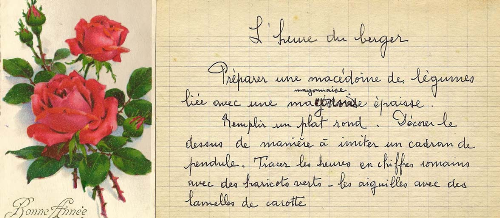 L'heure du berger
Préparer une macédoine de légumes
mayonnaise
liée avec une épaisse.
Remplir un plat rond. Décorer le
dessus de manière à imiter un cadran de
pendule. Tracer les heures en chiffres romains
avec des haricots verts - les aiguilles avec des
lamelles de carotte
Bonne Année